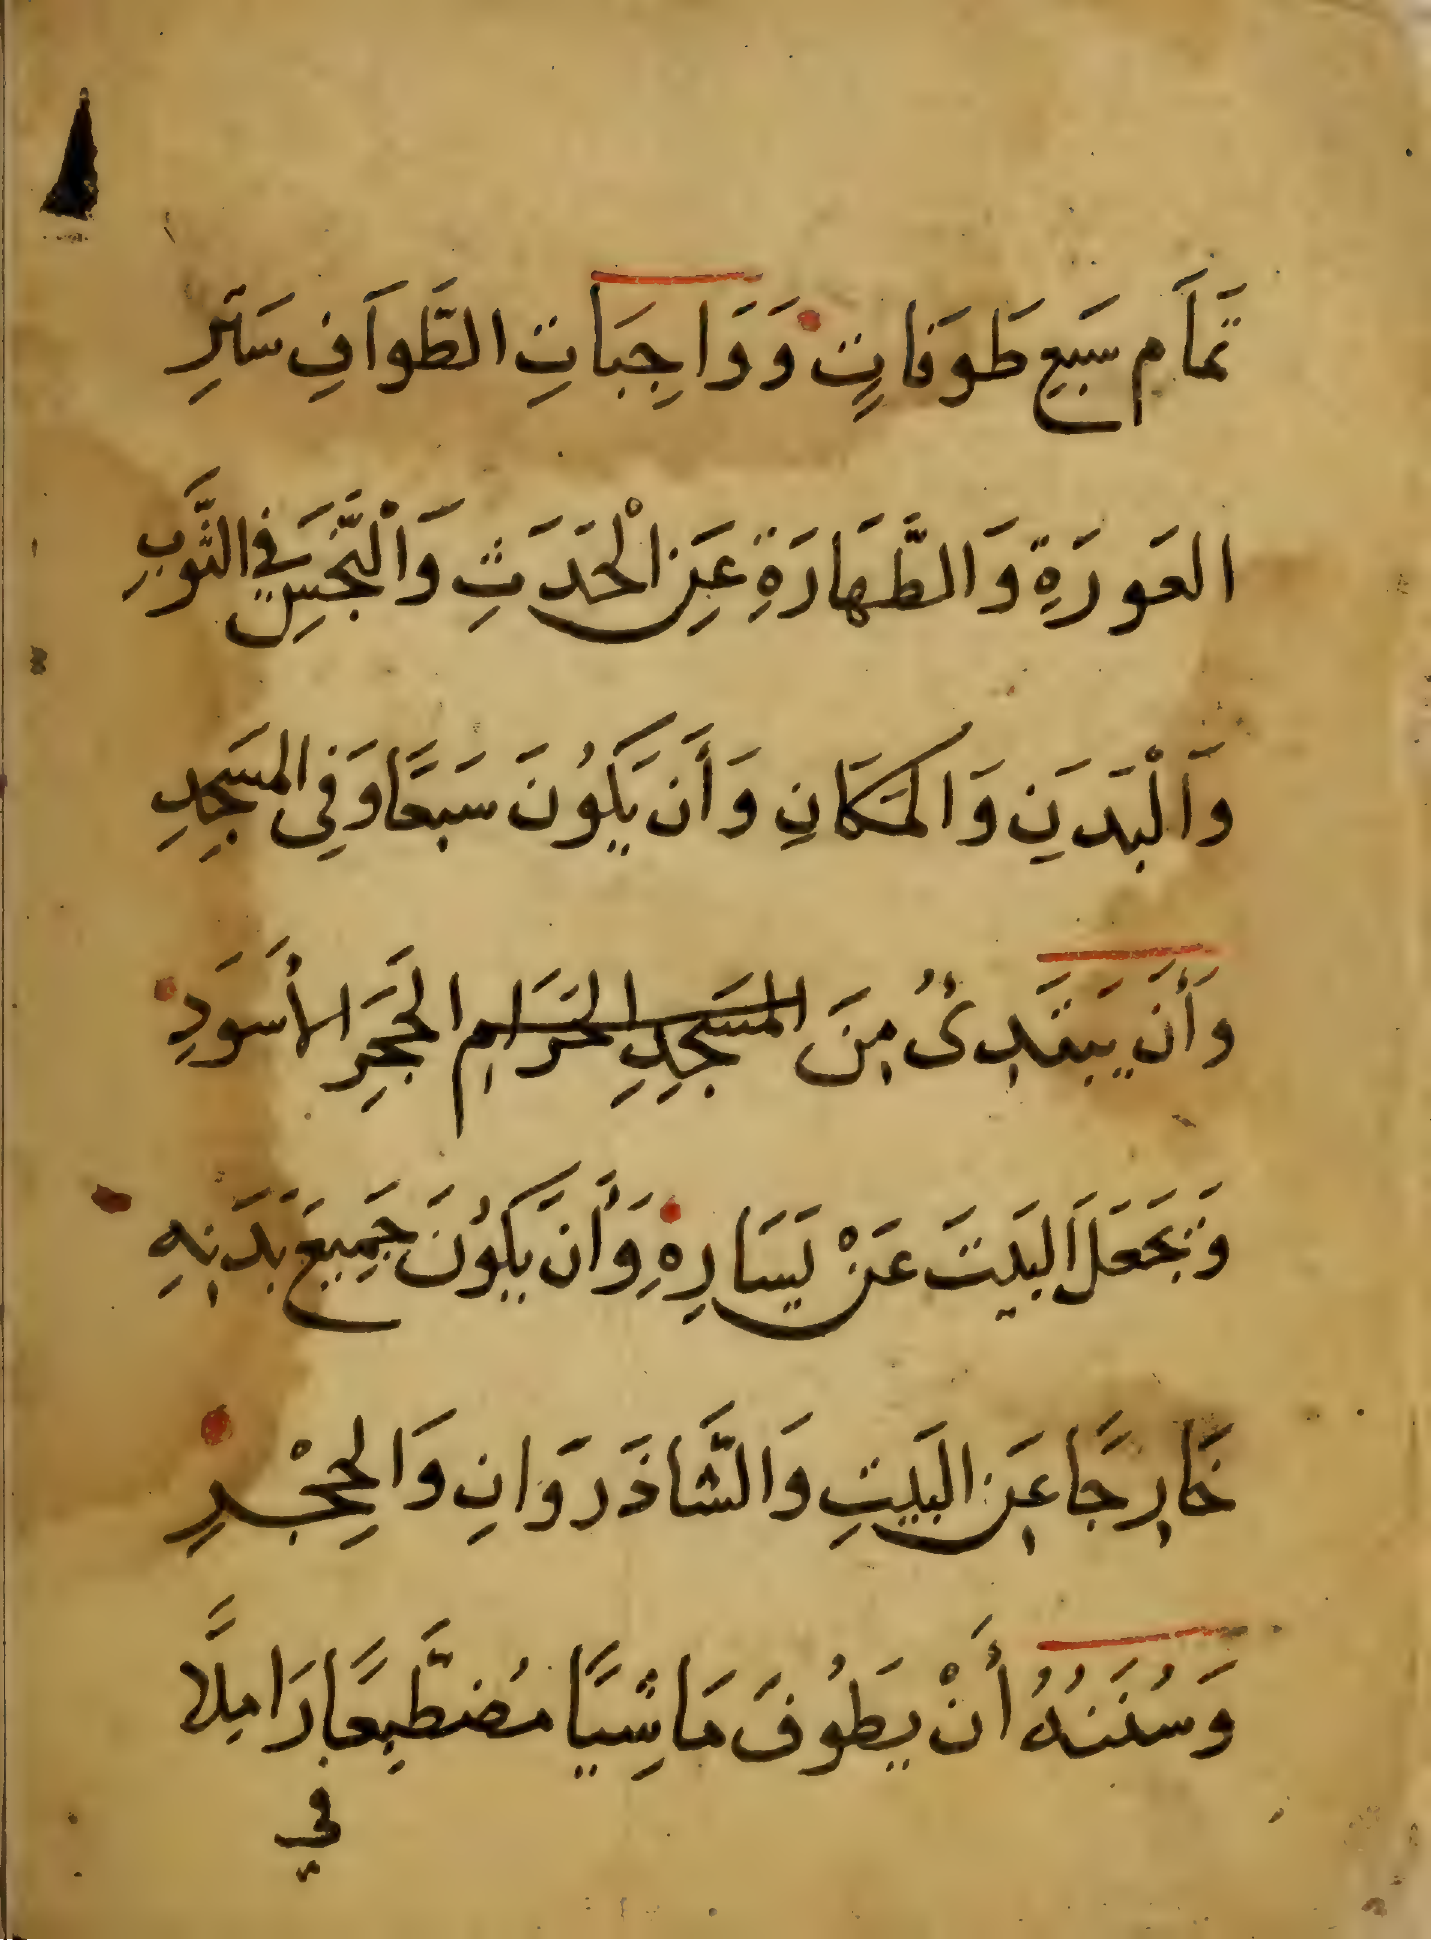 تَمَام سَبعِ طَوفَاتٍ وَوَاجِبَاتِ الطَّوَافِ سَترِ
العَورَةِ وَالطَّهَارَةِ عَنِ الْحَدَثِ وَالْنَّجَسِ في الثَّوبِ
وَالْبَدَنِ وَالمَكَانِ وَأَن يَكُونَ سَبعًا وَفِي المَسجِدِ
وَأَن يَبتَدِئُ مِنَ المَسجِدِ الحَرَامِ الحَجَرِ الأَسوَدِ
وَتجعَلَ البَيتَ عَنْ يَسَارِهِ وَأَن يَكُونَ جَمِيعَ بَدَنِهِ
خَارِجًا عَنِ البَيتِ وَالشَّاذَروَانِ وَالحِجْرِ
وَسُنَنُهُ أَنْ يَطُوفَ مَاشِيًا مُضطَّبِعًا رَامِلًا
في